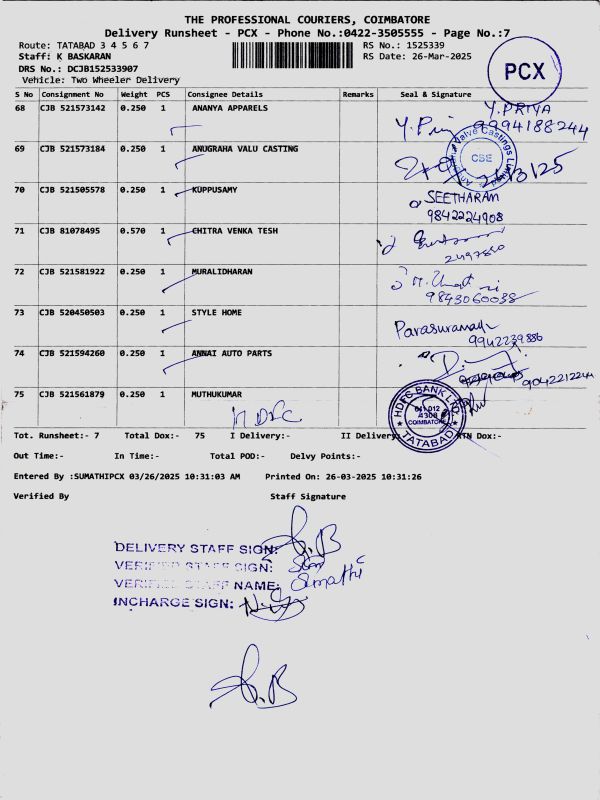 THE PROFESSIONAL COURIERS, COIMBATORE
Delivery Runsheet - PCX - Phone No.:0422-3505555 - Page No.:7
Route: TATABAD 3 4 5 6 7 RS No.: 1525339
Staff: K BASKARAN RS Date: 26-Mar-2025
DRS No.: DCJB152533907
Vehicle: Two Wheeler Delivery
PCX
S No Consignment No Weight PCS Consignee Details Remarks Seal & Signature
68 CJB 521573142 0.250 1 ANANYA APPARELS Y.PRIYA
9994188244
69 CJB 521573184 0.250 1 ANUGRAHA VALU CASTING
Valve Castings Limited
CBE
70 CJB 521505578 0.250 1 KUPPUSAMY SEETHARAM
9842224908
71 CJB 81078495 0.570 1 CHITRA VENKA TESH
72 CJB 521581922 0.250 1 MURALIDHARAN
9843060038
73 CJB 520450503 0.250 1 STYLE HOME
9942239886
74 CJB 521594260 0.250 1 ANNAI AUTO PARTS
9042212244
75 CJB 521561879 0.250 1 MUTHUKUMAR
HDFC BANK LTD.
COIMBATORE
TATABAD
Tot. Runsheet:- 7 Total Dox:- 75 I Delivery:- II Delivery: RTN Dox:-
Out Time:- In Time:- Total POD:- Delvy Points:-
Entered By :SUMATHIPCX 03/26/2025 10:31:03 AM Printed On: 26-03-2025 10:31:26
Verified By Staff Signature
DELIVERY STAFF SIGN:
VERIFIED STAFF SIGN:
VERIFIED STAFF NAME: Sumathi
INCHARGE SIGN: